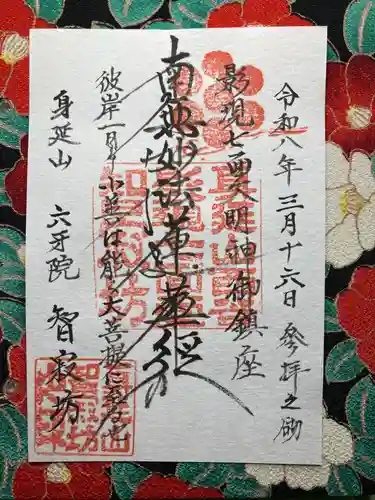 令和八年三月十六日 参拝之砌
影現七面大明神御鎮座
南無妙法蓮華経
彼岸一日小善は能く大菩提に至る也
身延山 六牙院 智寂坊